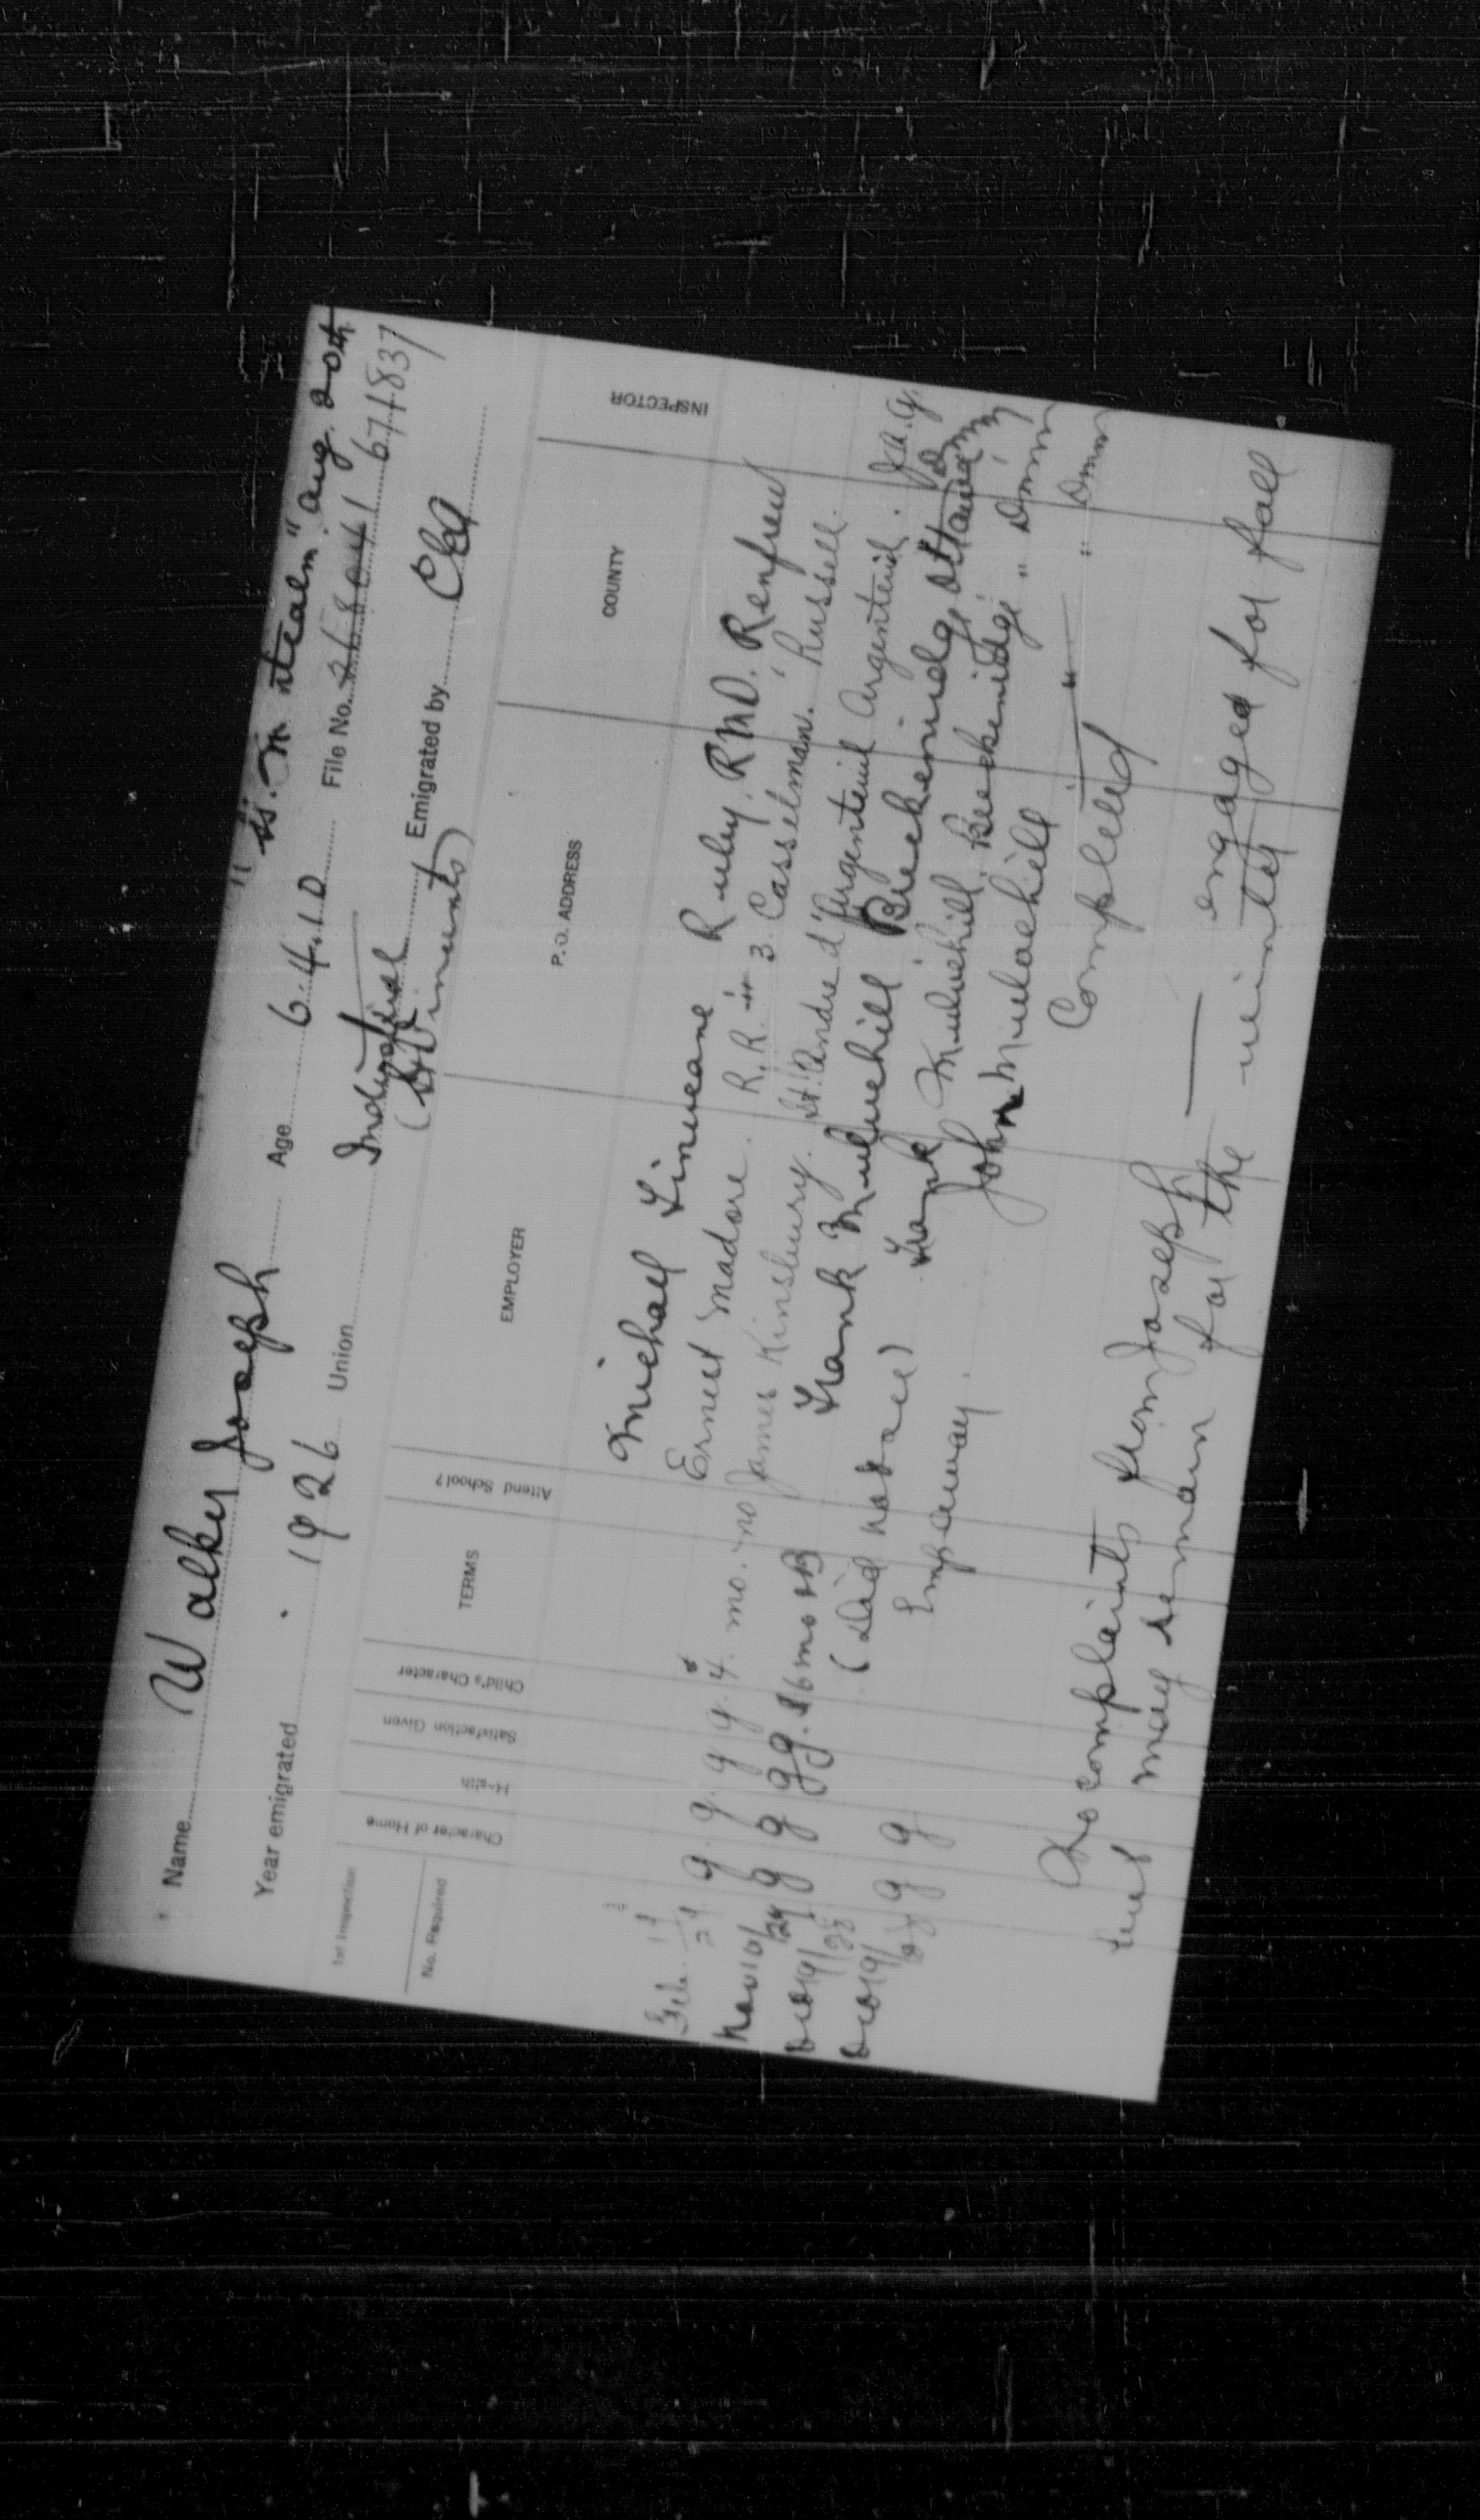 Name Walker Joseph Age 6.4.10 "s.s. M steam" Aug. 20th
Year emigrated 1926 Union Industrial File No. 268041 671837
(St Vincents) Emigrated by CEA
1st Inspection
No. Required
Character of Home
Health
Satisfaction Given
Child's Character
TERMS
Attend School?
EMPLOYER
P.O. ADDRESS
COUNTY
INSPECTOR
Michael Finucane Ruby. RMD. Renfrew
Feb. Ernest Madore. R.R. # 3. Casselman. Russell.
Nov 10/ g. g. g. g. 4. mo. no James Kinsbury. St. Andre d'Argenteuil Argenteuil. J.A.G.
Dec 19/28 g g g g. $6 mo + B Frank Mulvihill Breckenridge Ottawa
Dec 19/28 g g (Did not see) Frank Mulvihill Breckenridge " Dmm
Emp away. John Mulvihill " " Dmm
Completed
No complaints from Joseph — engaged for fall
but may remain for the winter